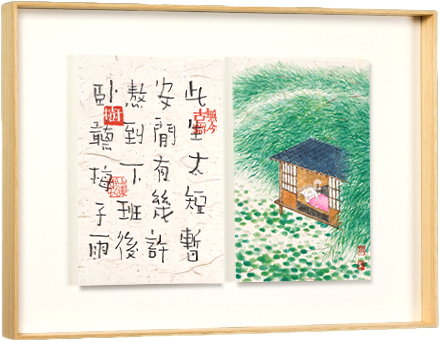 此生太短暫
安閒有幾許
熬到下班後
臥聽梅子雨